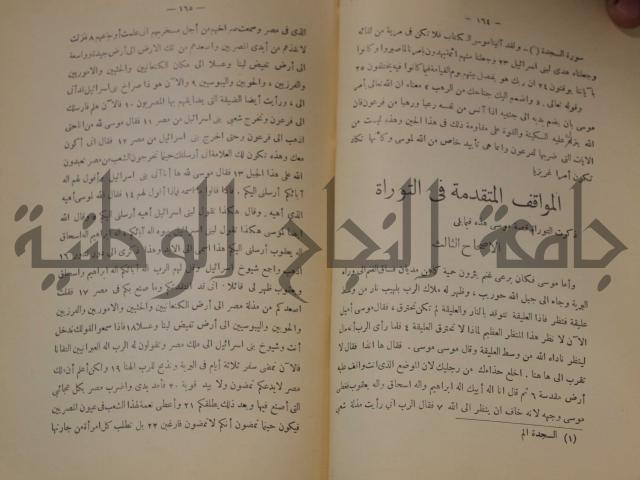 — ١٦٤ —
سورة السجدة (١) - ولقد آتينا موسى الكتاب فلا تكن في مرية من لقائه
وجعلناه هدى لبنى اسرائيل ٢٣ وجعلنا منهم أئمة يهدون بأمرنا لما صبروا وكانوا
بآياتنا يوقنون ٢٤ ان ربك هو يفصل بينهم يوم القيامة فيما كانوا فيه يختلفون ٢٥
وقوله تعالى . واضمم اليك جناحك من الرهب . معناه ان الله تعالى أمر
موسى بان يضم يديه الى جنبيه اذا آنس من نفسه رعبا ورهبا من فرعون فان
الله ينزل عليه السكينة والقوة على مقاومة ذلك في هذا الحين وهذه ليست من
الآيات التى ضربها لفرعون وانما هى تأييد خاص من الله لموسى وكأنها تكاد
تكون أمرا غريزيا
المواقف المتقدمة في التوراة
ذكرت التوراة قصة موسى هذه فيما يلى
الاصحاح الثالث
وأما موسى فكان يرعى غنم يثرون حميه كاهن مديان فساق الغنم الى وراء
البرية وجاء الى جبل الله حوريب . وظهر له ملاك الرب بلهيب نار من وسط
عليقة فنظر فاذا العليقة تتوقد بالنار والعليقة لم تكن تحترق . فقال موسى أميل
الآن لا نظر هذا المنظر العظيم لماذا لا تحترق العليقة ٤ فلما رأى الرب أنه مال
لينظر ناداه الله من وسط العليقة وقال موسى موسى . فقال ها أنذا فقال لا
تقترب الى ها هنا . اخلع حذاءك من رجليك لان الموضع الذى أنت واقف عليه
أرض مقدسة ٦ ثم قال أنا اله أبيك اله ابراهيم واله اسحاق واله يعقوب فغطى
موسى وجهه لانه خاف ان ينظر الى الله ٧ فقال الرب اني رأيت مذلة شعبى
(١) السجدة الم
— ١٦٥ —
الذى في مصر وسمعت صراخهم من أجل مسخريهم انى علمت أوجاعهم ٨ فنزلت
لانقذهم من أيدى المصريين وأصعدهم من تلك الارض الى أرض جيدة وواسعة
الى أرض تفيض لبنا وعسلا الى مكان الكنعانيين والحثيين والاموريين
والفرزيين . والحويين واليبوسيين ٩ والآن هو ذا صراخ بنى اسرائيل قد أتى
الى . ورأيت أيضا الضيقة التى يضايقهم بها المصريون ١٠ فالآن هلم فارسلك
الى فرعون وتخرج شعبى بنى اسرائيل من مصر ١١ فقال موسى لله من أنا حتى
اذهب الى فرعون وحتى اخرج بنى اسرائيل من مصر ١٢ فقال انى أكون
معك وهذه تكون لك العلامة انى أرسلتك حينما تخرج الشعب من مصر تعبدون
الله على هذا الجبل ١٣ فقال موسى لله ها أنا آتى الى بنى اسرائيل وأقول لهم اله
آبائكم أرسلنى اليكم . فاذا قالوا لى ما اسمه فماذا أقول لهم ١٤ فقال الله لموسى أهيه
الذى أهيه . وقال هكذا تقول لبنى اسرائيل أهيه أرسلنى اليكم ١٥ وقال الله
أيضا لموسى هكذا تقول لبنى اسرائيل يهوه اله آبائكم اله ابراهيم واله اسحاق
واله يعقوب أرسلنى اليكم هذا اسمى الى الابد وهذا ذكرى الى دور فدور ١٦
اذهب واجمع شيوخ اسرائيل وقل لهم الرب اله آبائكم اله ابراهيم واسحاق
ويعقوب ظهر لى قائلا . انى قد افتقدتكم وما صنع بكم في مصر ١٧ فقلت
اصعدكم من مذلة مصر الى أرض الكنعانيين والحثيين والاموريين والفرزيين
والحويين واليبوسيين الى أرض تفيض لبنا وعسلا ١٨ فاذا سمعوا لقولك تدخل
أنت وشيوخ بنى اسرائيل الى ملك مصر وتقولون له الرب اله العبرانيين التقانا
فالآن نمضى سفر ثلاثة أيام فى البرية ونذبح للرب الهنا ١٩ ولكن أعلم أن ملك
مصر لا يدعكم تمضون ولا بيد قوية ٢٠ فأمد يدى واضرب مصر بكل عجائبى
التى أصنع فيها وبعد ذلك يطلقكم ٢١ وأعطى نعمة لهذا الشعب فى عيون المصريين
فيكون حينما تمضون أنكم لا تمضون فارغين ٢٢ بل تطلب كل امرأة من جارتها
جامعة النجاح الوطنية